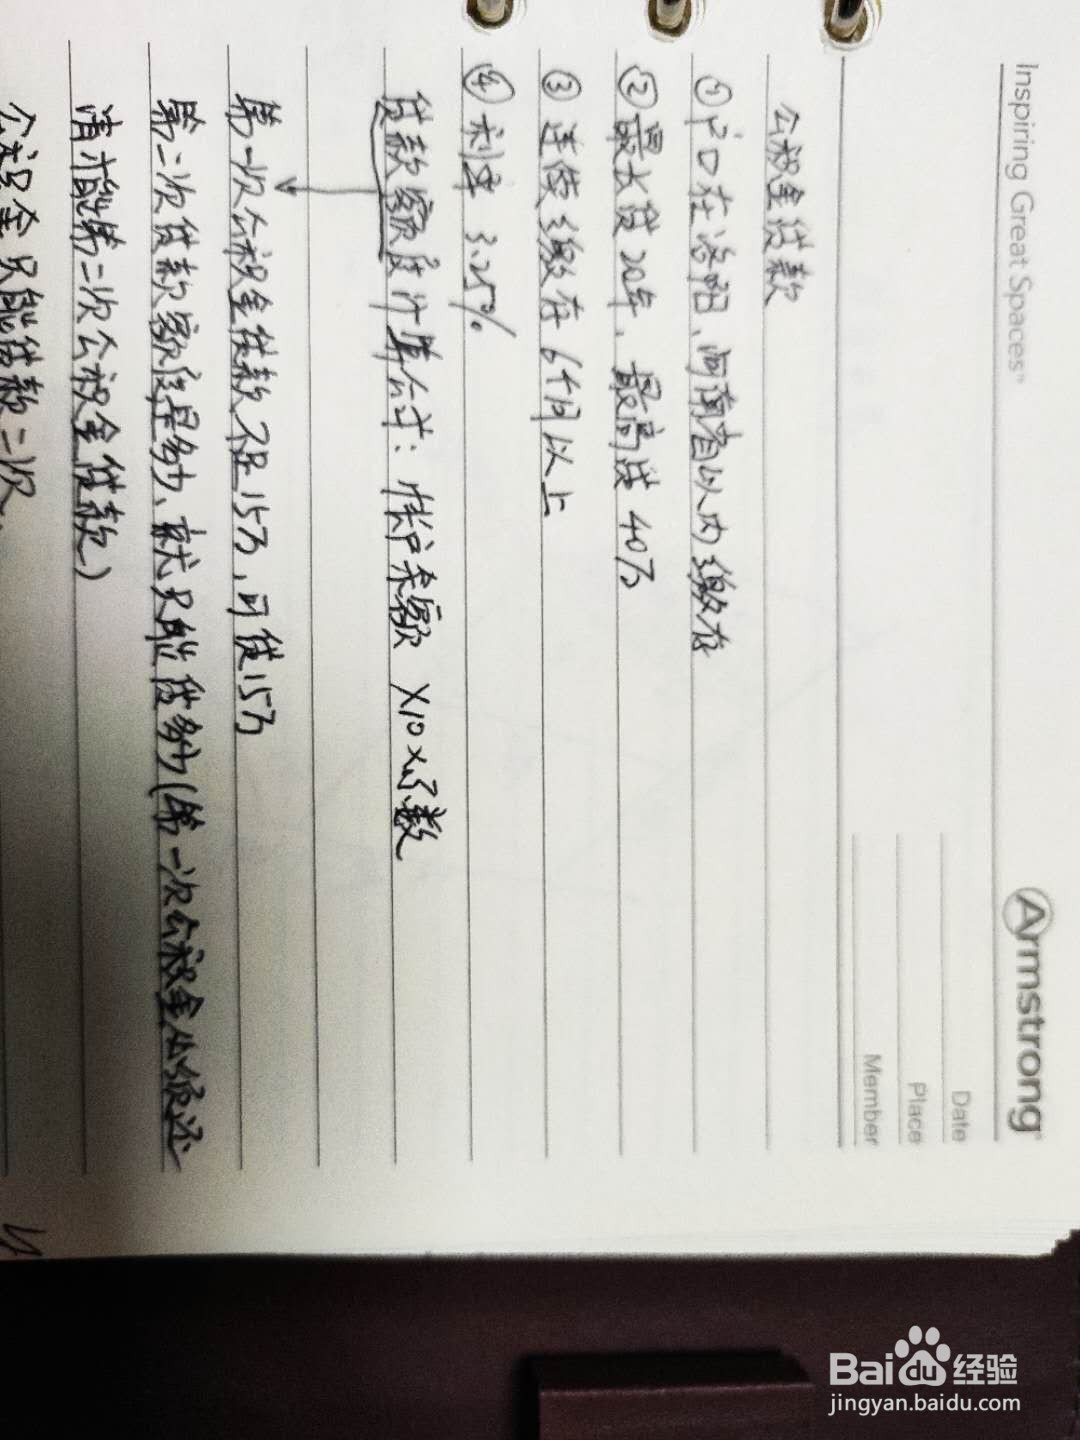 Inspiring Great Spaces®
Armstrong
Date
Place
Member
公积金贷款
①户口在洛阳、河南省以内缴存
②最长贷20年，最高贷40万
③连续缴存6个月以上
④利率 3.25%
贷款额度计算公式：帐户余额 ×10×系数
第一次公积金贷款不足15万，可贷15万
第二次贷款额度是多少、就只能贷多少(第一次公积金必须还
清才能第二次公积金贷款)
公积金只能贷款二次.
Baidu经验
jingyan.baidu.com